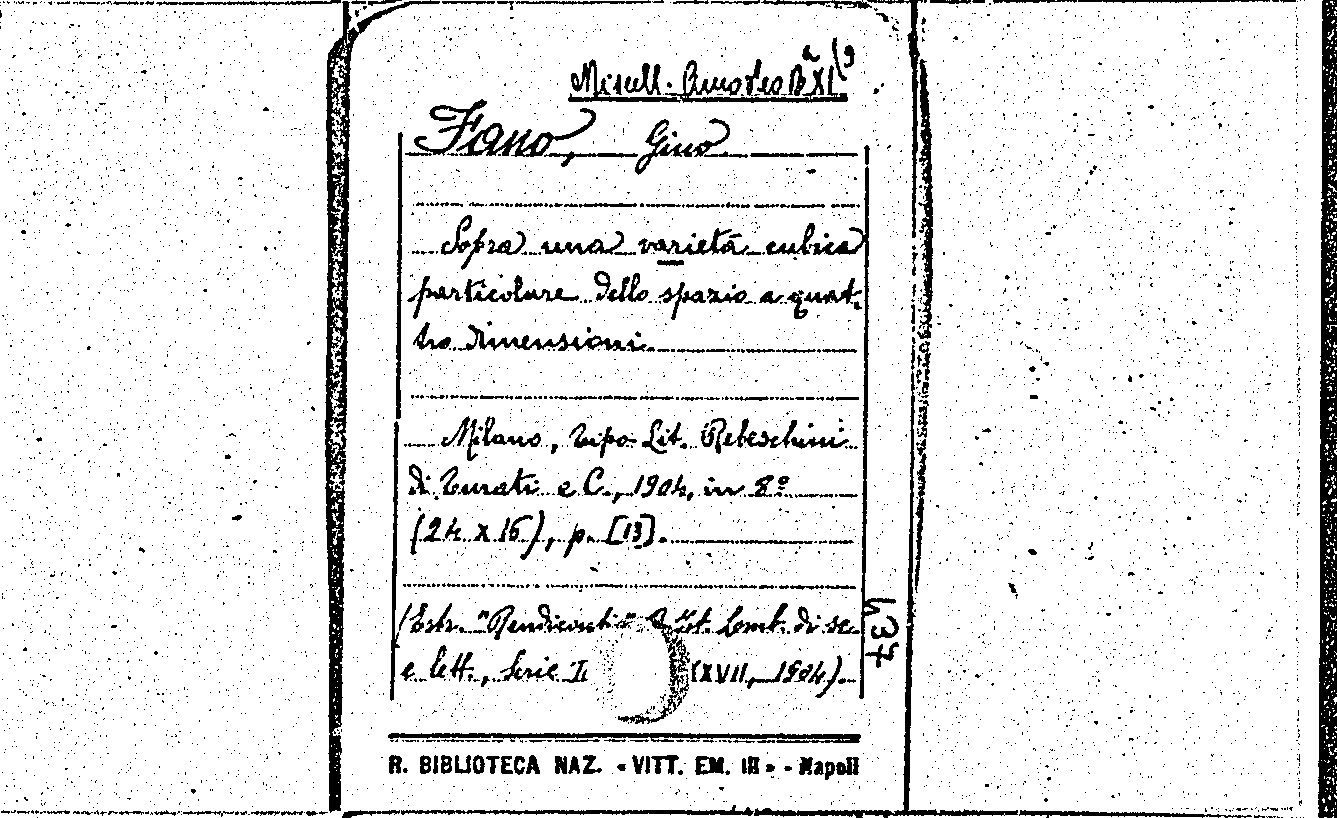 Miscell. Amodeo B XL (9
Fano, Gino
Sopra una varietà cubica
particolare dello spazio a quat-
tro dimensioni.
Milano, Tipo-Lit. Rebeschini
di Turati e C., 1904, in 8º
(24 x 16), p. [13].
(Estr. "Rendiconti" Ist. Lomb. di sc.
e lett., Serie II (XVII, 1904).
R. BIBLIOTECA NAZ. « VITT. EM. III » - Napoli